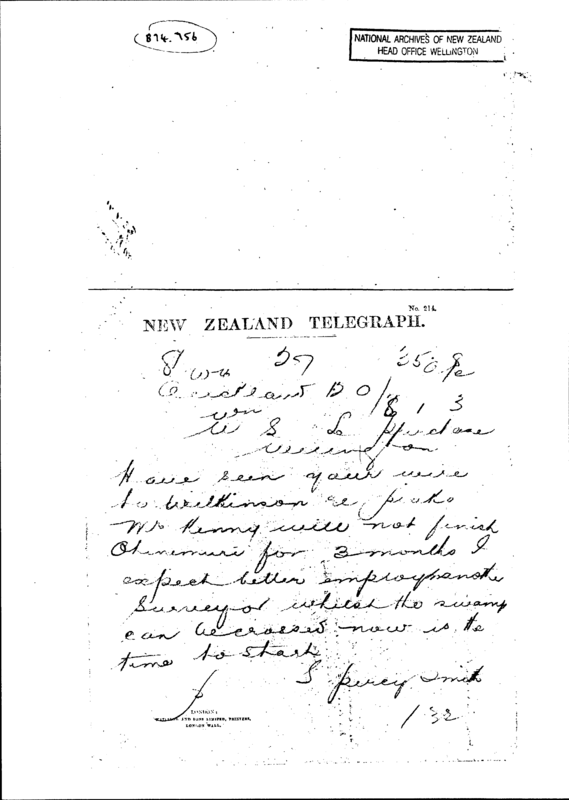 874.756
NATIONAL ARCHIVES OF NEW ZEALAND
HEAD OFFICE WELLINGTON
No. 214.
NEW ZEALAND TELEGRAPH.
57
Auckland B O / 8 1 3
Wellington
Have seen your wire
to Wilkinson re piako
Mr Kenny will not finish
Ohinemuri for 3 months I
expect better employ another
Surveyor whilst the swamp
can be crossed now is the
time to start
S percy Smith
/ 32
LONDON:
AND SONS LIMITED, PRINTERS,
LONDON WALL.